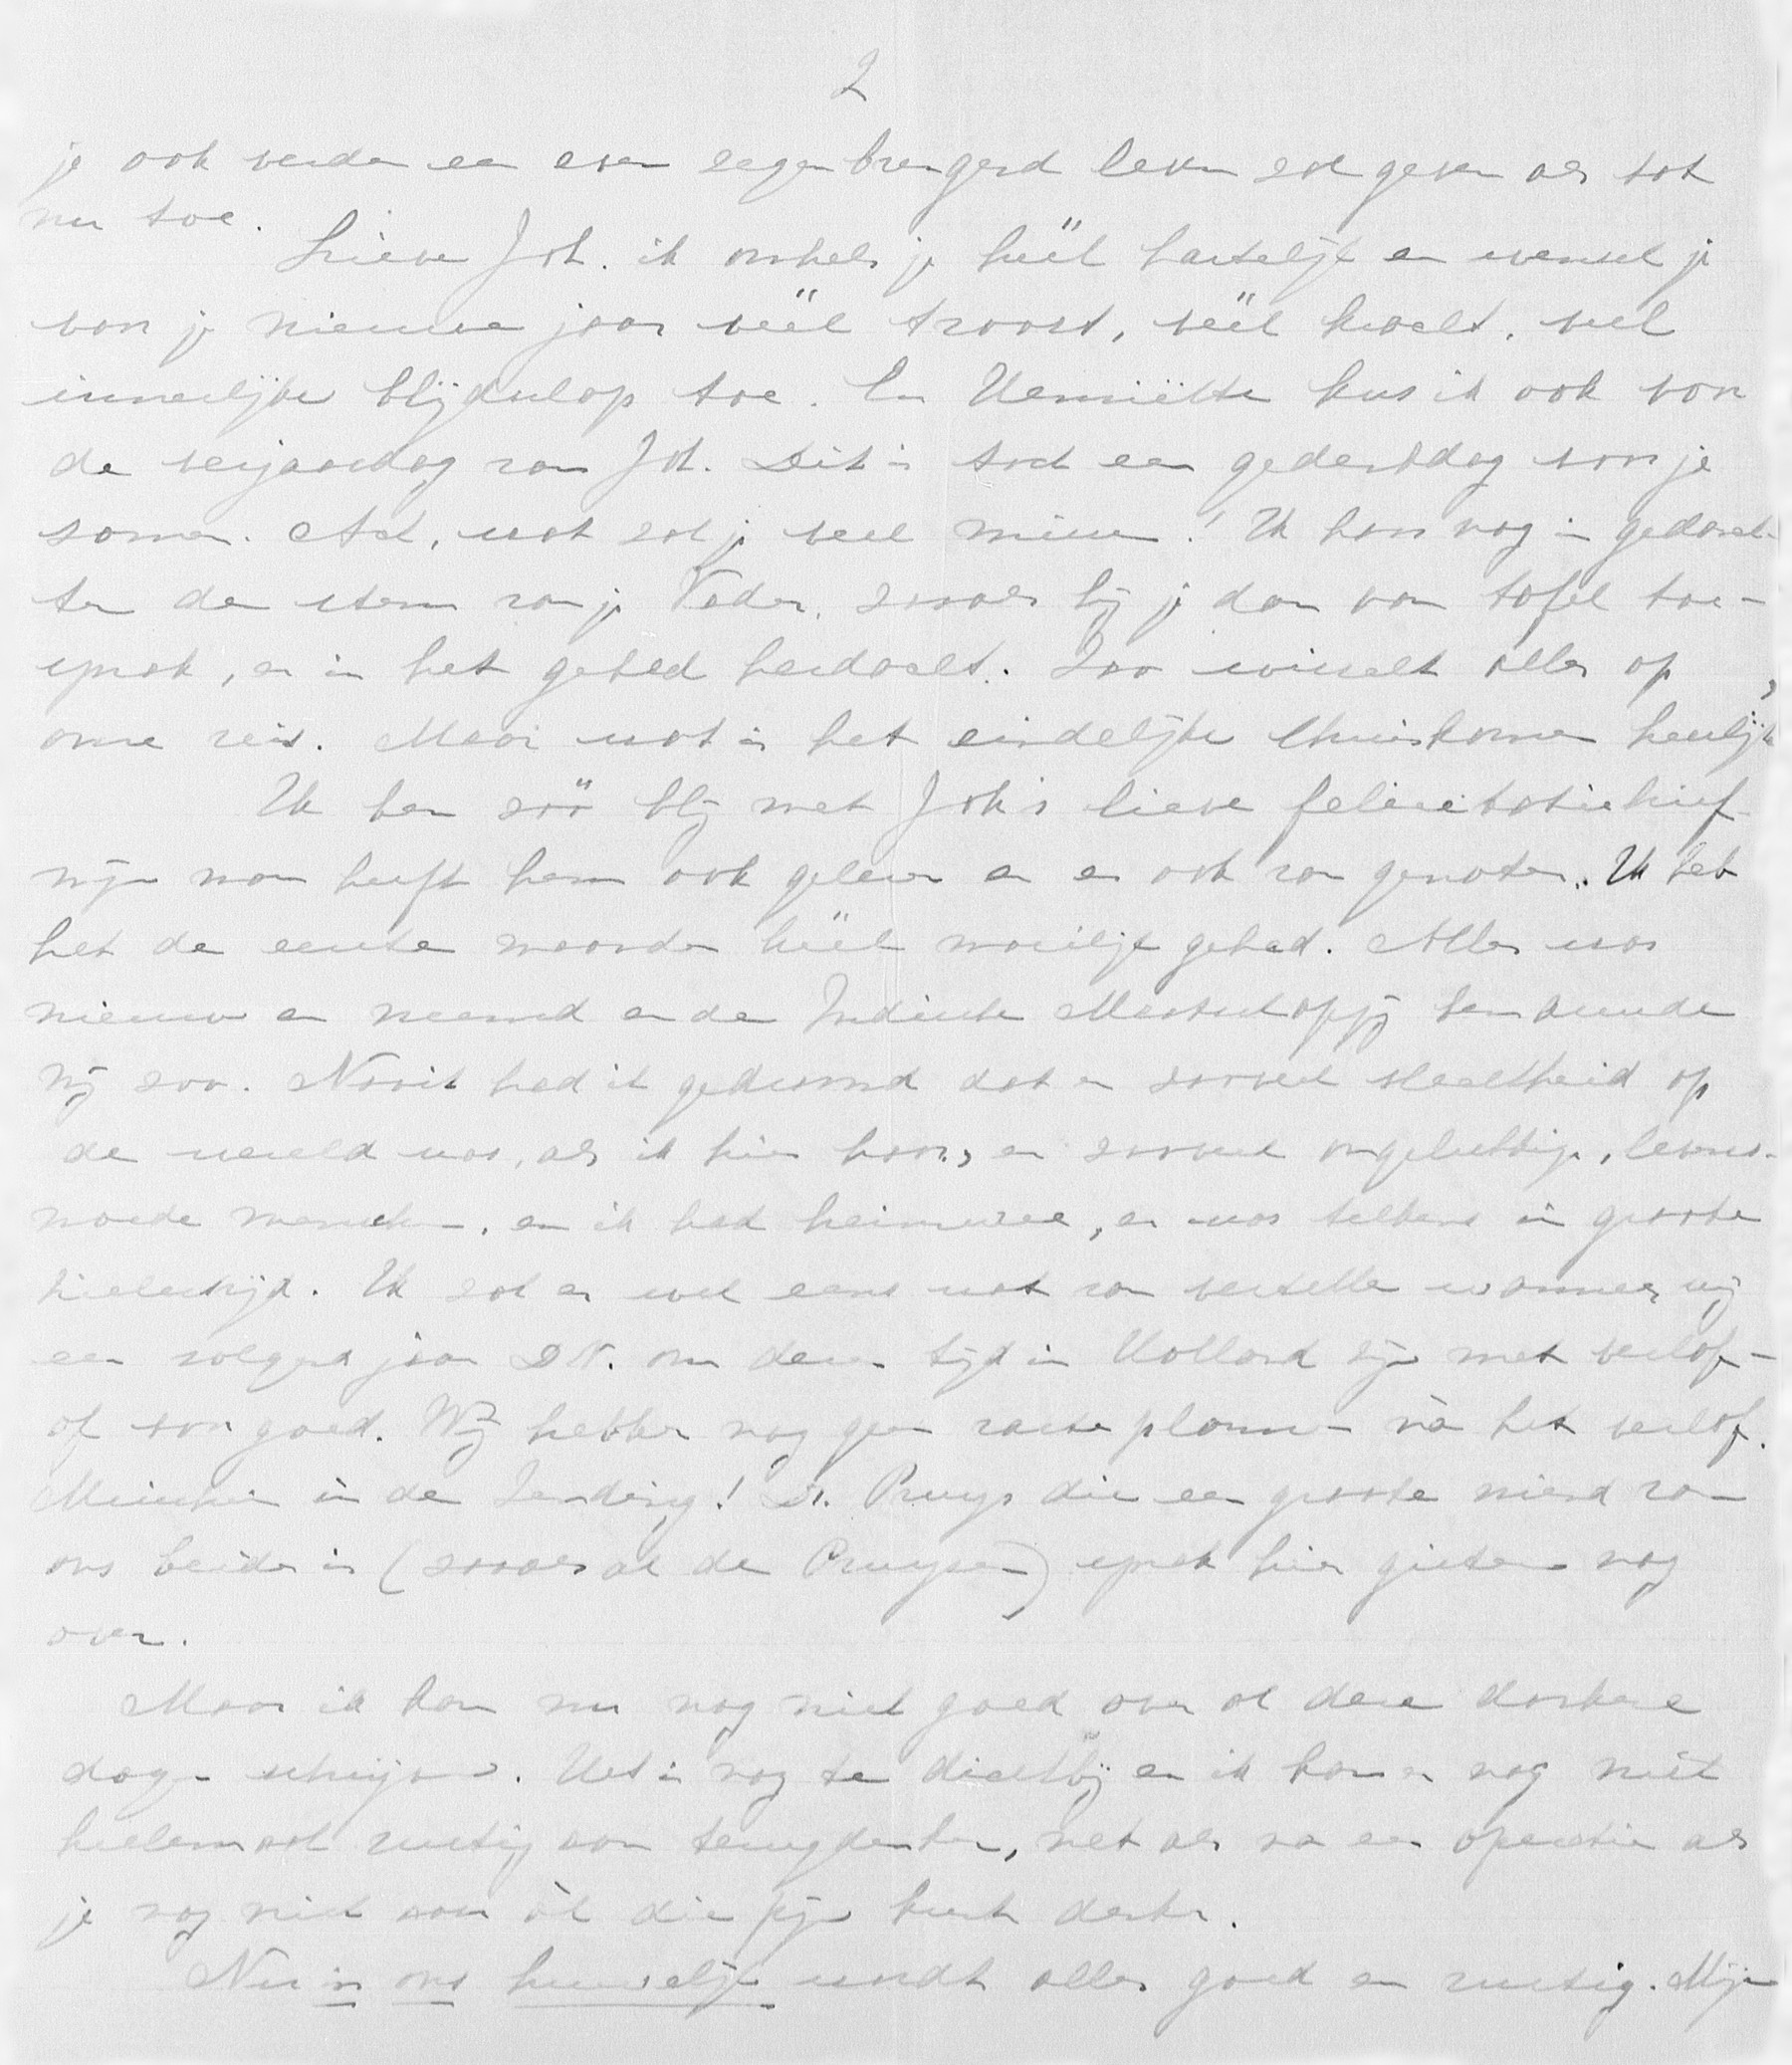 2
je ook verder een even zegenbrengend leven zal geven als tot
nu toe.
Lieve Joh. ik omhels je héél hartelijk en wensch je
voor je nieuwe jaar véél troost, véél kracht, veel
innerlijke blijdschap toe. En Henriëtte kus ik ook voor
de verjaardag van Joh. Dit is toch een gedenkdag voor je
samen. Ach, wat zal je veel missen! Ik hoor nog in gedach-
ten de stem van je Vader, zooals hij je dan aan tafel toe-
sprak, en in het gebed herdacht. Zoo wisselt alles op
onze reis. Maar wat is het eindelijke thuiskomen heerlijk
Ik ben zóó blij met Joh's lieve felicitatiebrief
mijn man heeft hem ook gelezen en er ook van genoten. Ik heb
het de eerste maanden héél moeilijk gehad. Alles was
nieuw en vreemd en de Indische Maatschappij benauwde
mij zoo. Nooit had ik gedroomd dat er zooveel slechtheid op
de wereld was, als ik hier hoor, en zooveel ongelukkige, levens-
moede menschen, en ik had heimwee, en was telkens in groote
zielestrijd. Ik zal er wel eens wat van vertellen wanneer wij
een volgend jaar D.V. om dezen tijd in Holland zijn met verlof -
of voor goed. Wij hebben nog geen vaste plannen ná het verlof.
Misschien in de Zending! Dr. Pruys die een groote vriend van
ons beiden is (zooals al de Pruysen) sprak hier gisteren nog
over.
Maar ik kan nu nog niet goed over al deze donkere
dagen schrijven. Het is nog te dichtbij en ik kan er nog niet
heelemaal rustig aan terugdenken, net als na een operatie als
je nog niet aan ál die pijn kunt denken.
Nu in ons huwelijk wordt alles goed en rustig. Mijn